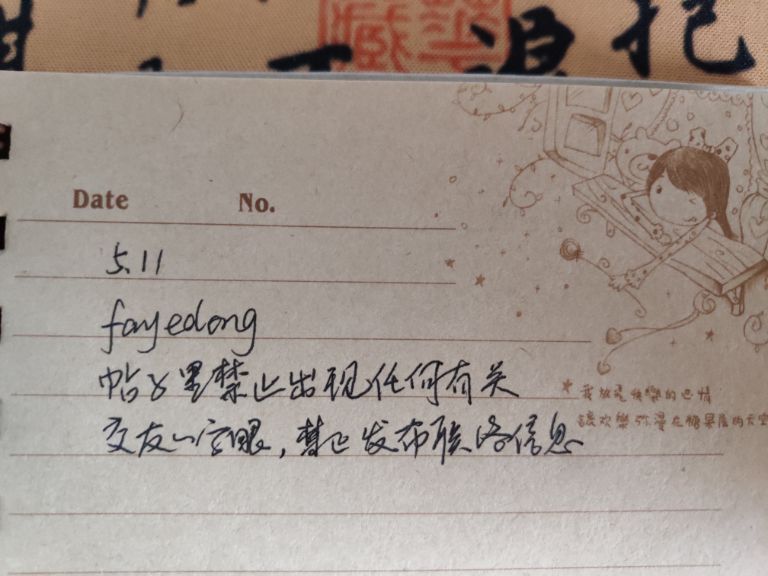 浪 抱
Date No.
5.11
fayedong
帖子里禁止出现任何有关
交友的字眼，禁止发布联络信息
我放飛快樂的心情
讓歡樂弥漫在糖果屋的天空